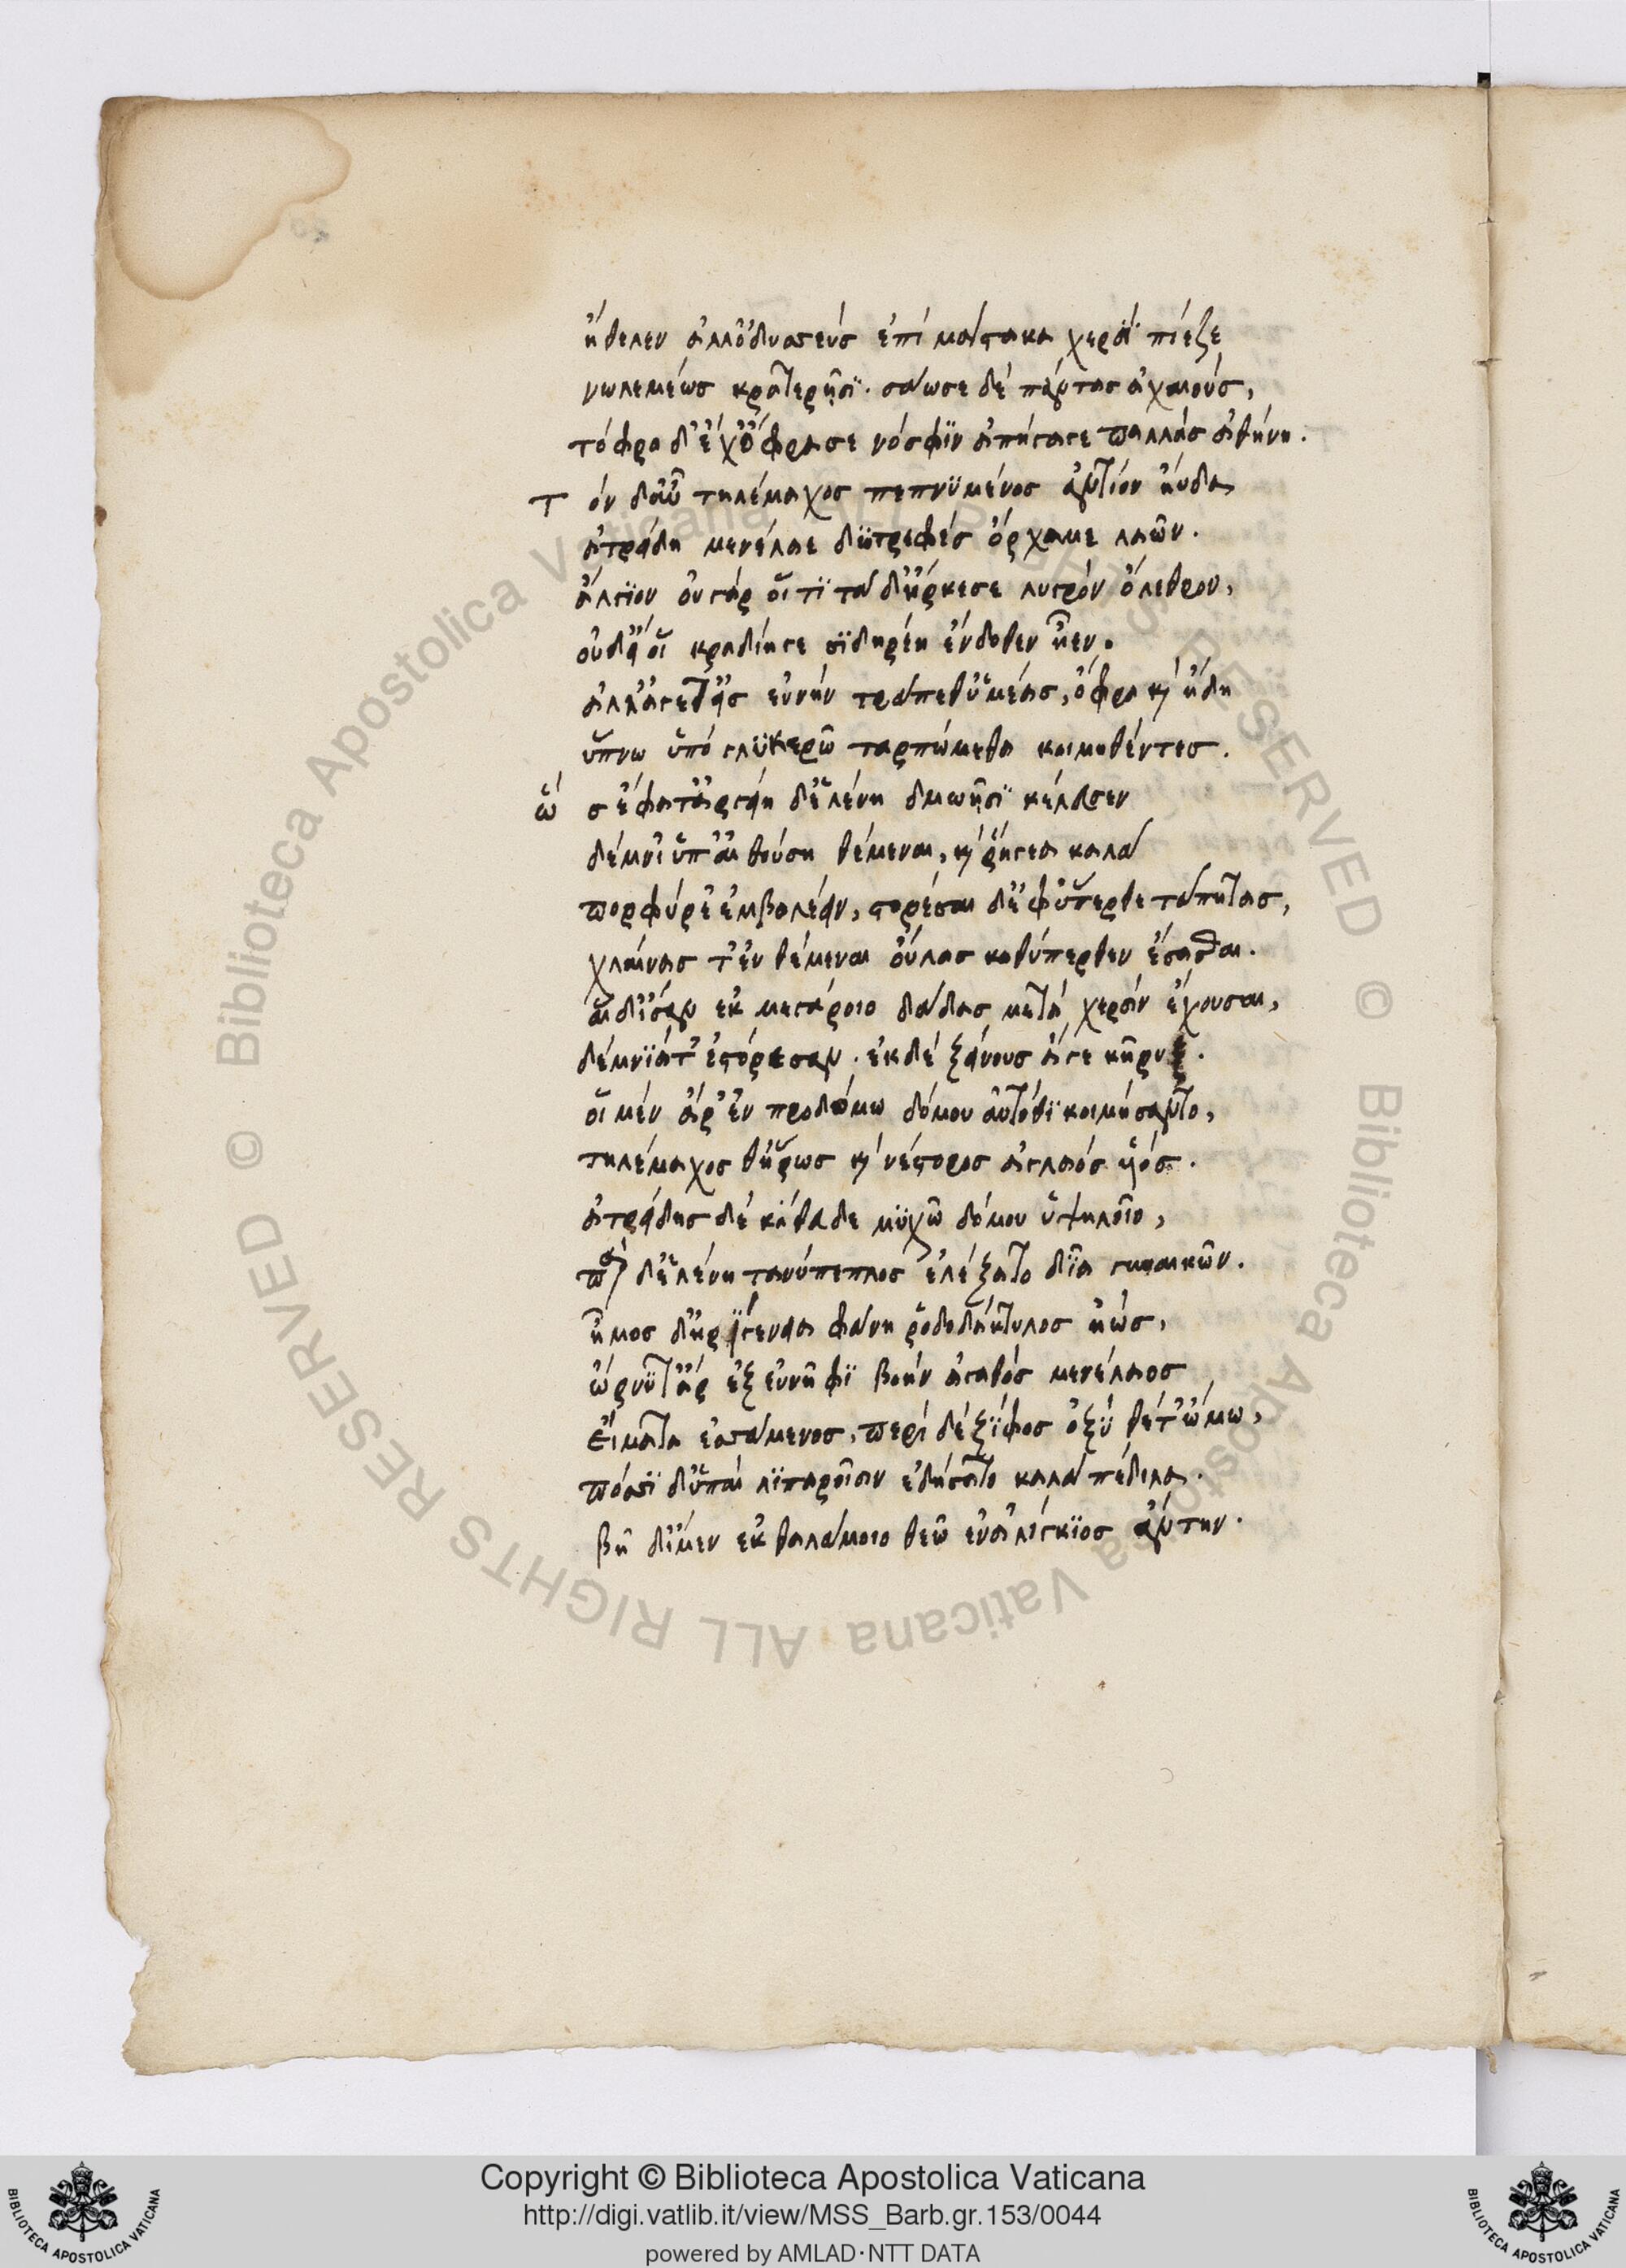 ἤθελεν ἀλλ' ὀδυσσεύς ἐπί μάστακα χερσί πίεζε
νωλεμέως κρατερῆσϊ. σάωσε δέ πάντας ἀχαιούς,
τόφρα δ' ἔχ' ὄφρα σε νόσφϊν ἀπήγαγε παλλάς ἀθήνη.
Τόν δ' αὖ τηλέμαχος πεπνϋμένος ἀντίον ηὔδα
ἀτρείδη μενέλαε διοτρεφές ὄρχαμε λαῶν.
ἄλγϊον οὐ γάρ οἵ τϊ τά γ' ἤρκεσε λυγρόν ὄλεθρον,
οὐδ' εἴ οἱ κραδίη γε σϊδηρέη ἔνδοθεν ἦεν.
ἀλλ' ἄγετ' εἰς εὐνήν τράπεθ' ὑμέας, ὄφρα καί ἤδη
ὕπνω ὕπό γλϋκερῶ ταρπώμεθα κοιμηθέντες.
ὥς ἔφατ' ἀργείη δ' ἑλένη δμωῆσϊ κέλευσεν
δέμνϊ' ὑπ' αἰθούση θέμεναι, καί ῥήγεα καλά
πορφύρε' ἐμβαλέειν, στορέσαι δ' ἐφύπερθε τάπητας,
χλαίνας τ' ἐνθέμεναι οὔλας καθύπερθεν ἔσασθαι.
αἱ δ' ἴσαν ἐκ μεγάροιο δάδας μετά χερσίν ἔχουσαι,
δέμνϊα τ' ἐστόρεσαν. ἐκ δέ ξείνους ἄγε κῆρυξ.
οἱ μέν ἄρ' ἐν προδόμω δόμου αὐτόθϊ κοιμήσαντο,
τηλέμαχος θ' ἥρως καί νέστορος ἀγλαός ὑϊός.
ἀτρείδης δέ κάθευδε μϋχῶ δόμου ὑψηλοῖο,
πάρ δ' ἑλένη τανύπεπλος ἐλέξατο δῖα γυναικῶν.
ἦμος δ' ἠρϊγένεια φάνη ῥοδοδάκτυλος ἠώς,
ὤρνυτ' ἄρ ἐξ εὐνῆφϊ βοήν ἀγαθός μενέλαος
εἵματα ἐσσάμενος, περί δέ ξϊφος ὀξύ θέτ' ὤμω,
πόσσϊ δ' ὑπαί λϊπαροῖσιν ἐδήσατο καλά πέδιλα.
βῆ δ' ἴμεν ἐκ θαλάμοιο θεῶ ἐναλίγκϊος ἄντην.
Copyright © Biblioteca Apostolica Vaticana
http://digi.vatlib.it/view/MSS_Barb.gr.153/0044
powered by AMLAD·NTT DATA
© Biblioteca Apostolica Vaticana ALL RIGHTS RESERVED
© Biblioteca Apostolica Vaticana ALL RIGHTS RESERVED
BIBLIOTECA APOSTOLICA VATICANA
BIBLIOTECA APOSTOLICA VATICANA